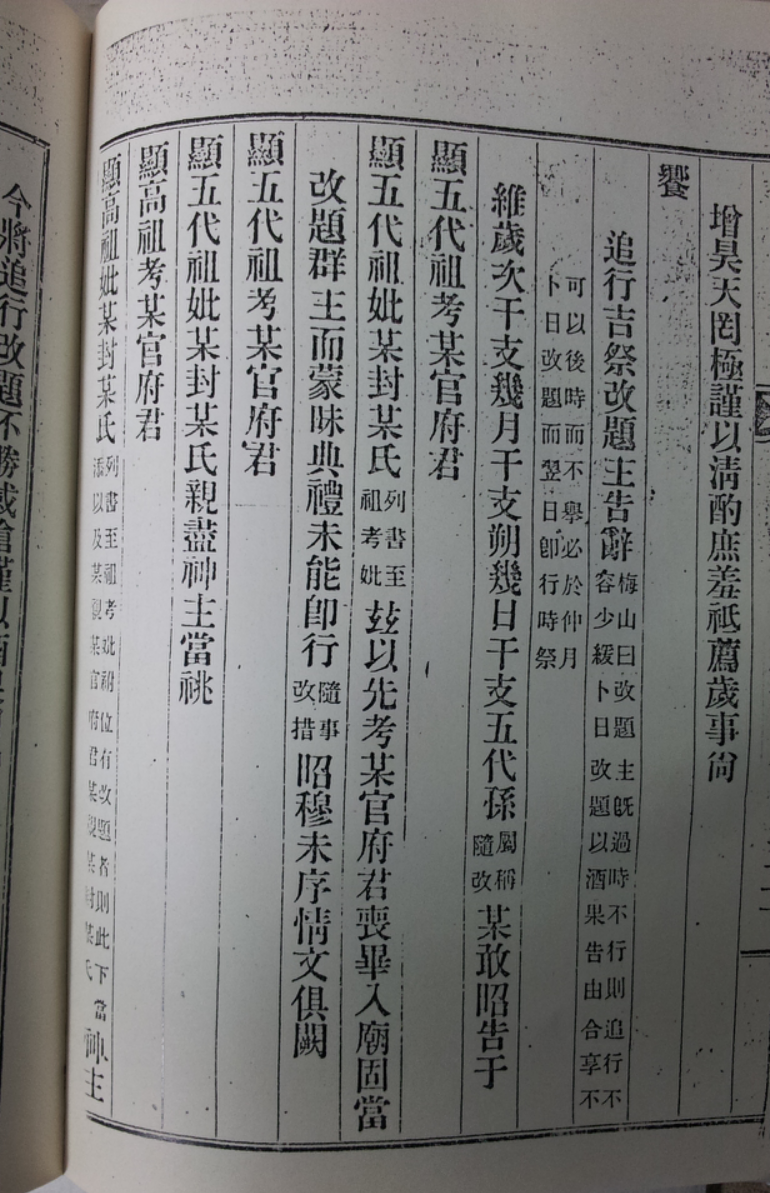 增昊天罔極謹以清酌庶羞祗薦歲事尙
饗
追行吉祭改題主告辭梅山曰改題主旣過時不行則追行不容少緩卜日改題以酒果告由合享不
可以後時而不擧必於仲月卜日改題而翌日卽行時祭
維歲次干支幾月干支朔幾日干支五代孫屬稱隨改某敢昭告于
顯五代祖考某官府君
顯五代祖妣某封某氏列書至祖考妣玆以先考某官府君喪畢入廟固當
改題群主而蒙昧典禮未能卽行隨事改措昭穆未序情文俱闕
顯五代祖考某官府君
顯五代祖妣某封某氏親盡神主當祧
顯高祖考某官府君
顯高祖妣某封某氏列書至祖考妣祔位有改題者則此下當添以及某親某官府君某親某封某氏神主
今將追行改題不勝感愴謹以酒果